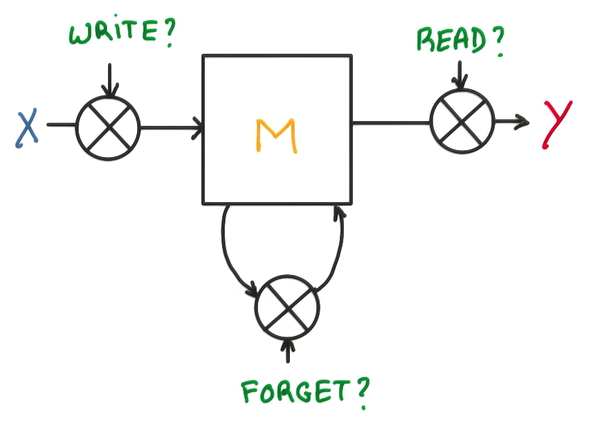 WRITE?
READ?
X
M
Y
FORGET?